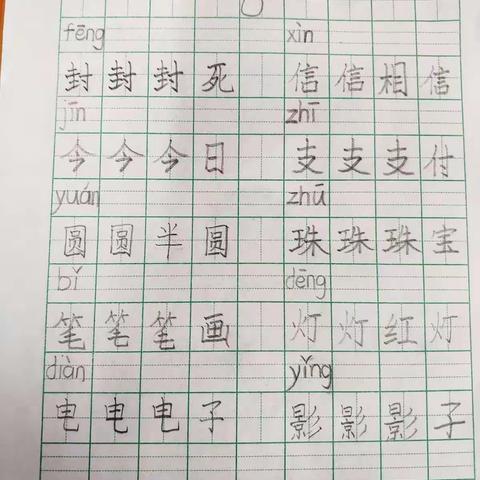 fēng xìn
封封封死 信信相信
jīn zhī
今今今日 支支支付
yuán zhū
圆圆半圆 珠珠珠宝
bǐ dēng
笔笔笔画 灯灯红灯
diàn yǐng
电电电子 影影影子